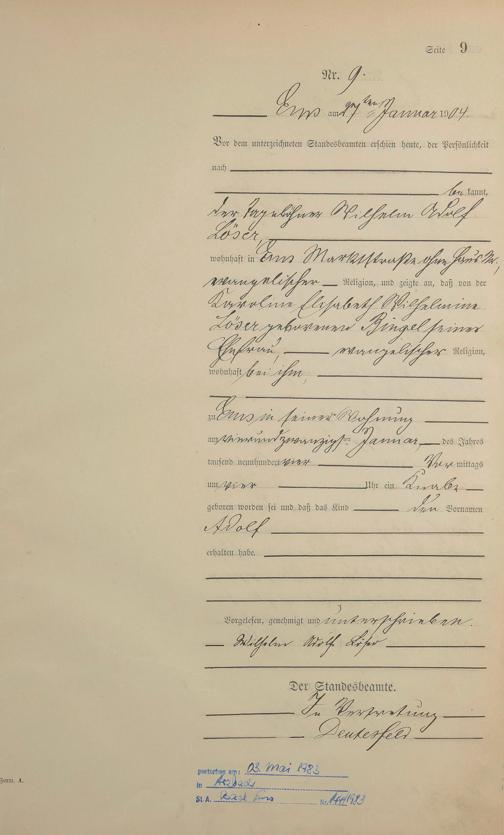 Seite 9
Nr. 9.
Ems am 27ten Januar 1904.
Vor dem unterzeichneten Standesbeamten erschien heute, der Persönlichkeit
nach
be kannt,
der Tagelöhner Wilhelm Adolf
Löser,
wohnhaft in Ems Marktstraße ohne Haus Nr.,
evangelischer Religion, und zeigte an, daß von der
Karoline Elisabeth Wilhelmine
Löser geborenen Bingel seiner
Ehefrau, evangelischer Religion,
wohnhaft bei ihm,
zu Ems in seiner Wohnung
am vierundzwanzigst. Januar, des Jahres
tausend neunhundert vier Vor mittags
um vier Uhr ein Knabe
geboren worden sei und daß das Kind den Vornamen
Adolf
erhalten habe.
Vorgelesen, genehmigt und unterschrieben.
Wilhelm Adolf Löser
Der Standesbeamte.
In Vertretung
Deutesfeld
gestorben am: 03. Mai 1983
in
St.A. Ems Nr. 1983
Form. A.